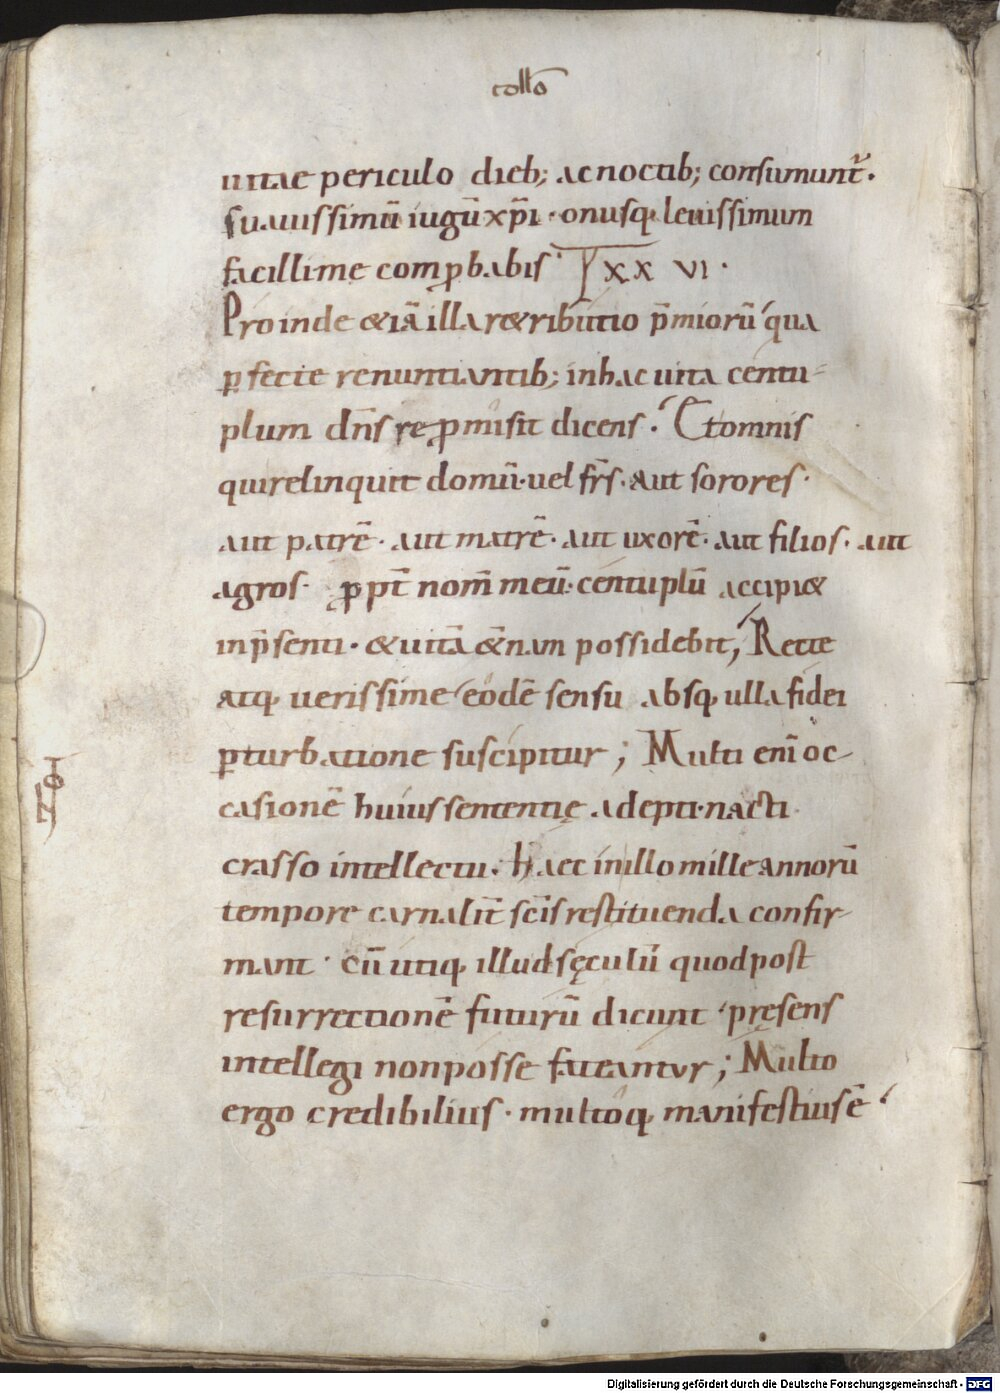 collō
uitae periculo dieb; ac noctib; consumunt̃.
suauissimū iugū xp̄i · onusq; leuissimum
facillime comꝓbabis · T XXVI ·
Proinde &iā illa r&ributio p̄miorū qua
ꝑfecte renuntiantib; in hac uita centu-
plum dn̄s repromisit dicens. Et omnis
qui relinquit domū · uel frs̄ · aut sorores ·
aut patrē · aut matrē · aut uxorē · aut filios · aut
agros · ꝓpt̄ nom̄ meū · centuplū accipi&
in p̄senti · & uitā &̄nam possidebit; Recte
atq; uerissime eodē sensu absq; ulla fidei
ꝑturbatione suscipitur; Multi eni̅ oc-
casionē huius sententię adepti · nacti
crasso intellectu. Haec in illo mille annorū
tempore carnalit̄ scīs restituenda confir-
mant · cū utiq; illud sęculū quod post
resurrectionē futurū dicunt · pręsens
intellegi non posse fateantur; Multo
ergo credibilius · multoq; manifestius ē